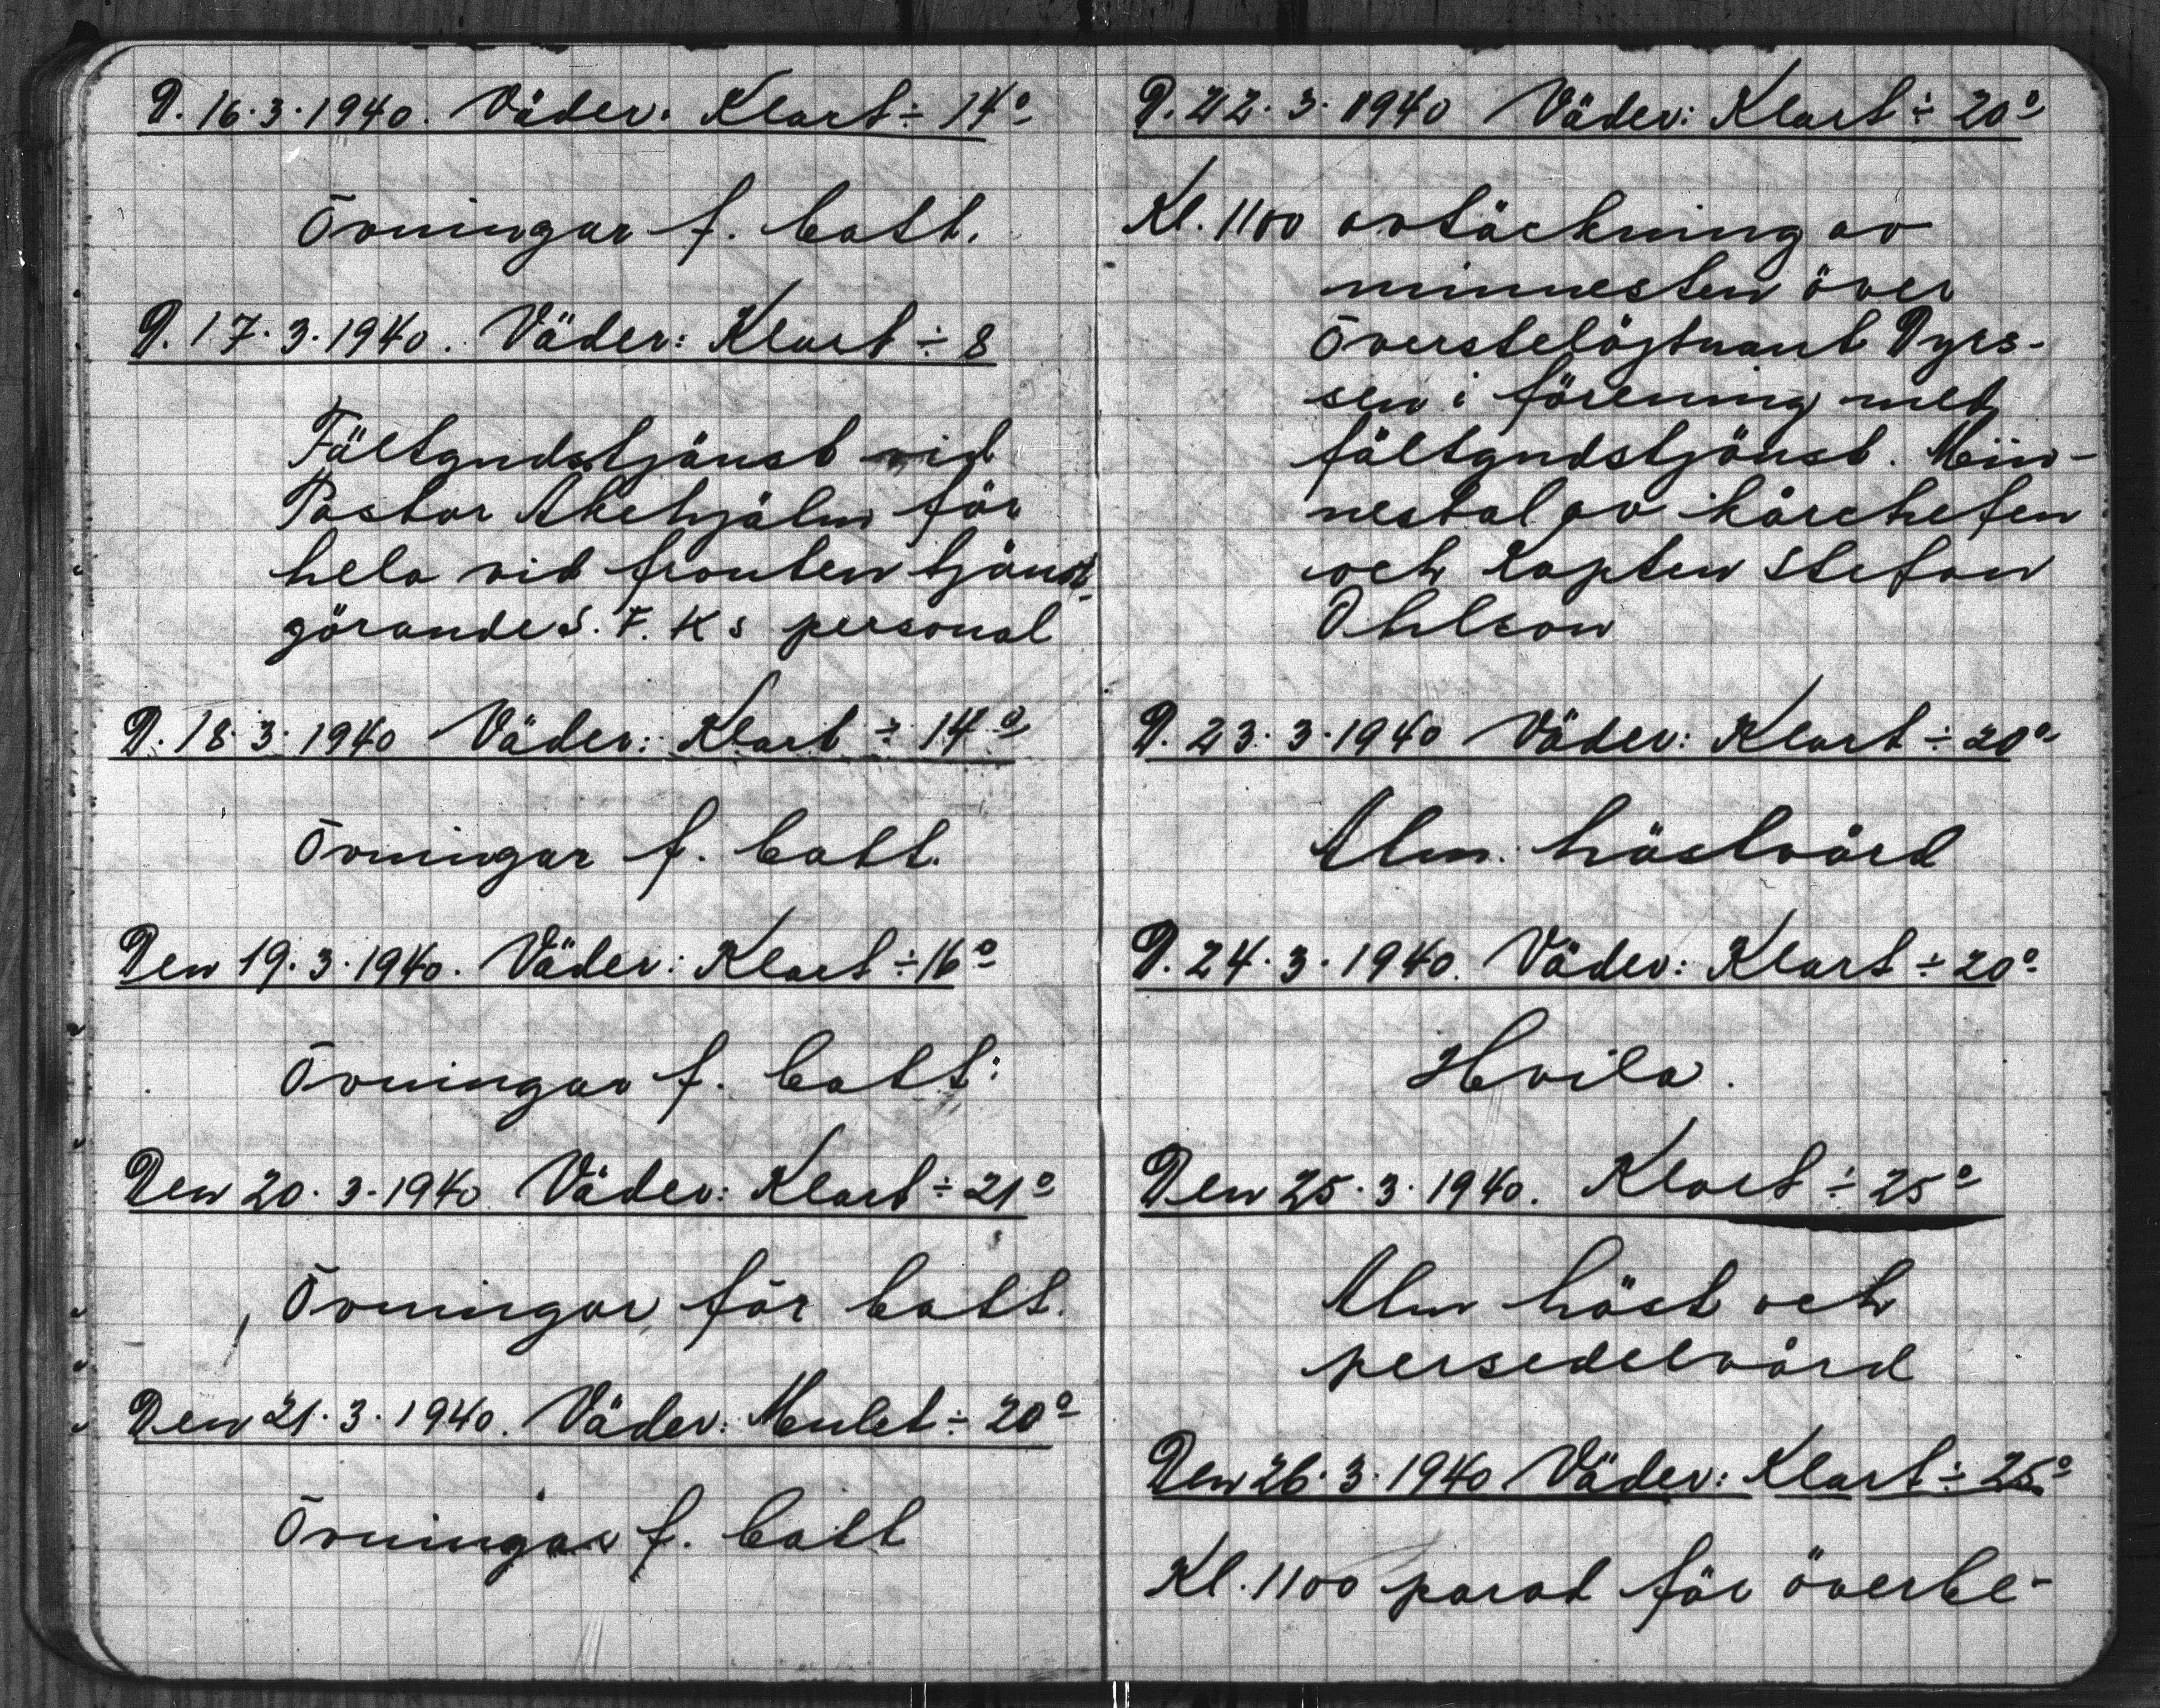 D. 16.3.1940. Väder: Klart ÷ 14°
Övningar f. batt.
D. 17.3.1940. Väder: Klart ÷ 8
Fältgudstjänst vid
Pastor Åkehjälm för
hela vid fronten tjänst-
görande S.F.Ks personal
D. 18.3.1940 Väder: Klart ÷ 14°
Övningar f. batt.
Den 19.3.1940. Väder: Klart ÷ 16°
Övningar f. batt.
Den 20.3.1940 Väder: Klart ÷ 21°
Övningar för batt.
Den 21.3.1940. Väder: Mulet ÷ 20°
Övningar f. batt
D. 22.3.1940 Väder: Klart ÷ 20°
Kl. 1100 avtäckning av
minnesten över
Överstelöjtnant Dyrs-
sen i förening med
fältgudstjänst. Min-
nestal av kårchefen
och Kapten Stefan
Ohlson
D. 23.3.1940 Väder: Klart ÷ 20°
Alm. hästvård
D. 24.3.1940. Väder: Klart ÷ 20°
Hvila.
Den 25.3.1940. Klart ÷ 25°
Alm häst och
persedelvård
Den 26.3.1940 Väder: Klart ÷ 25°
Kl. 1100 parad för överbe-